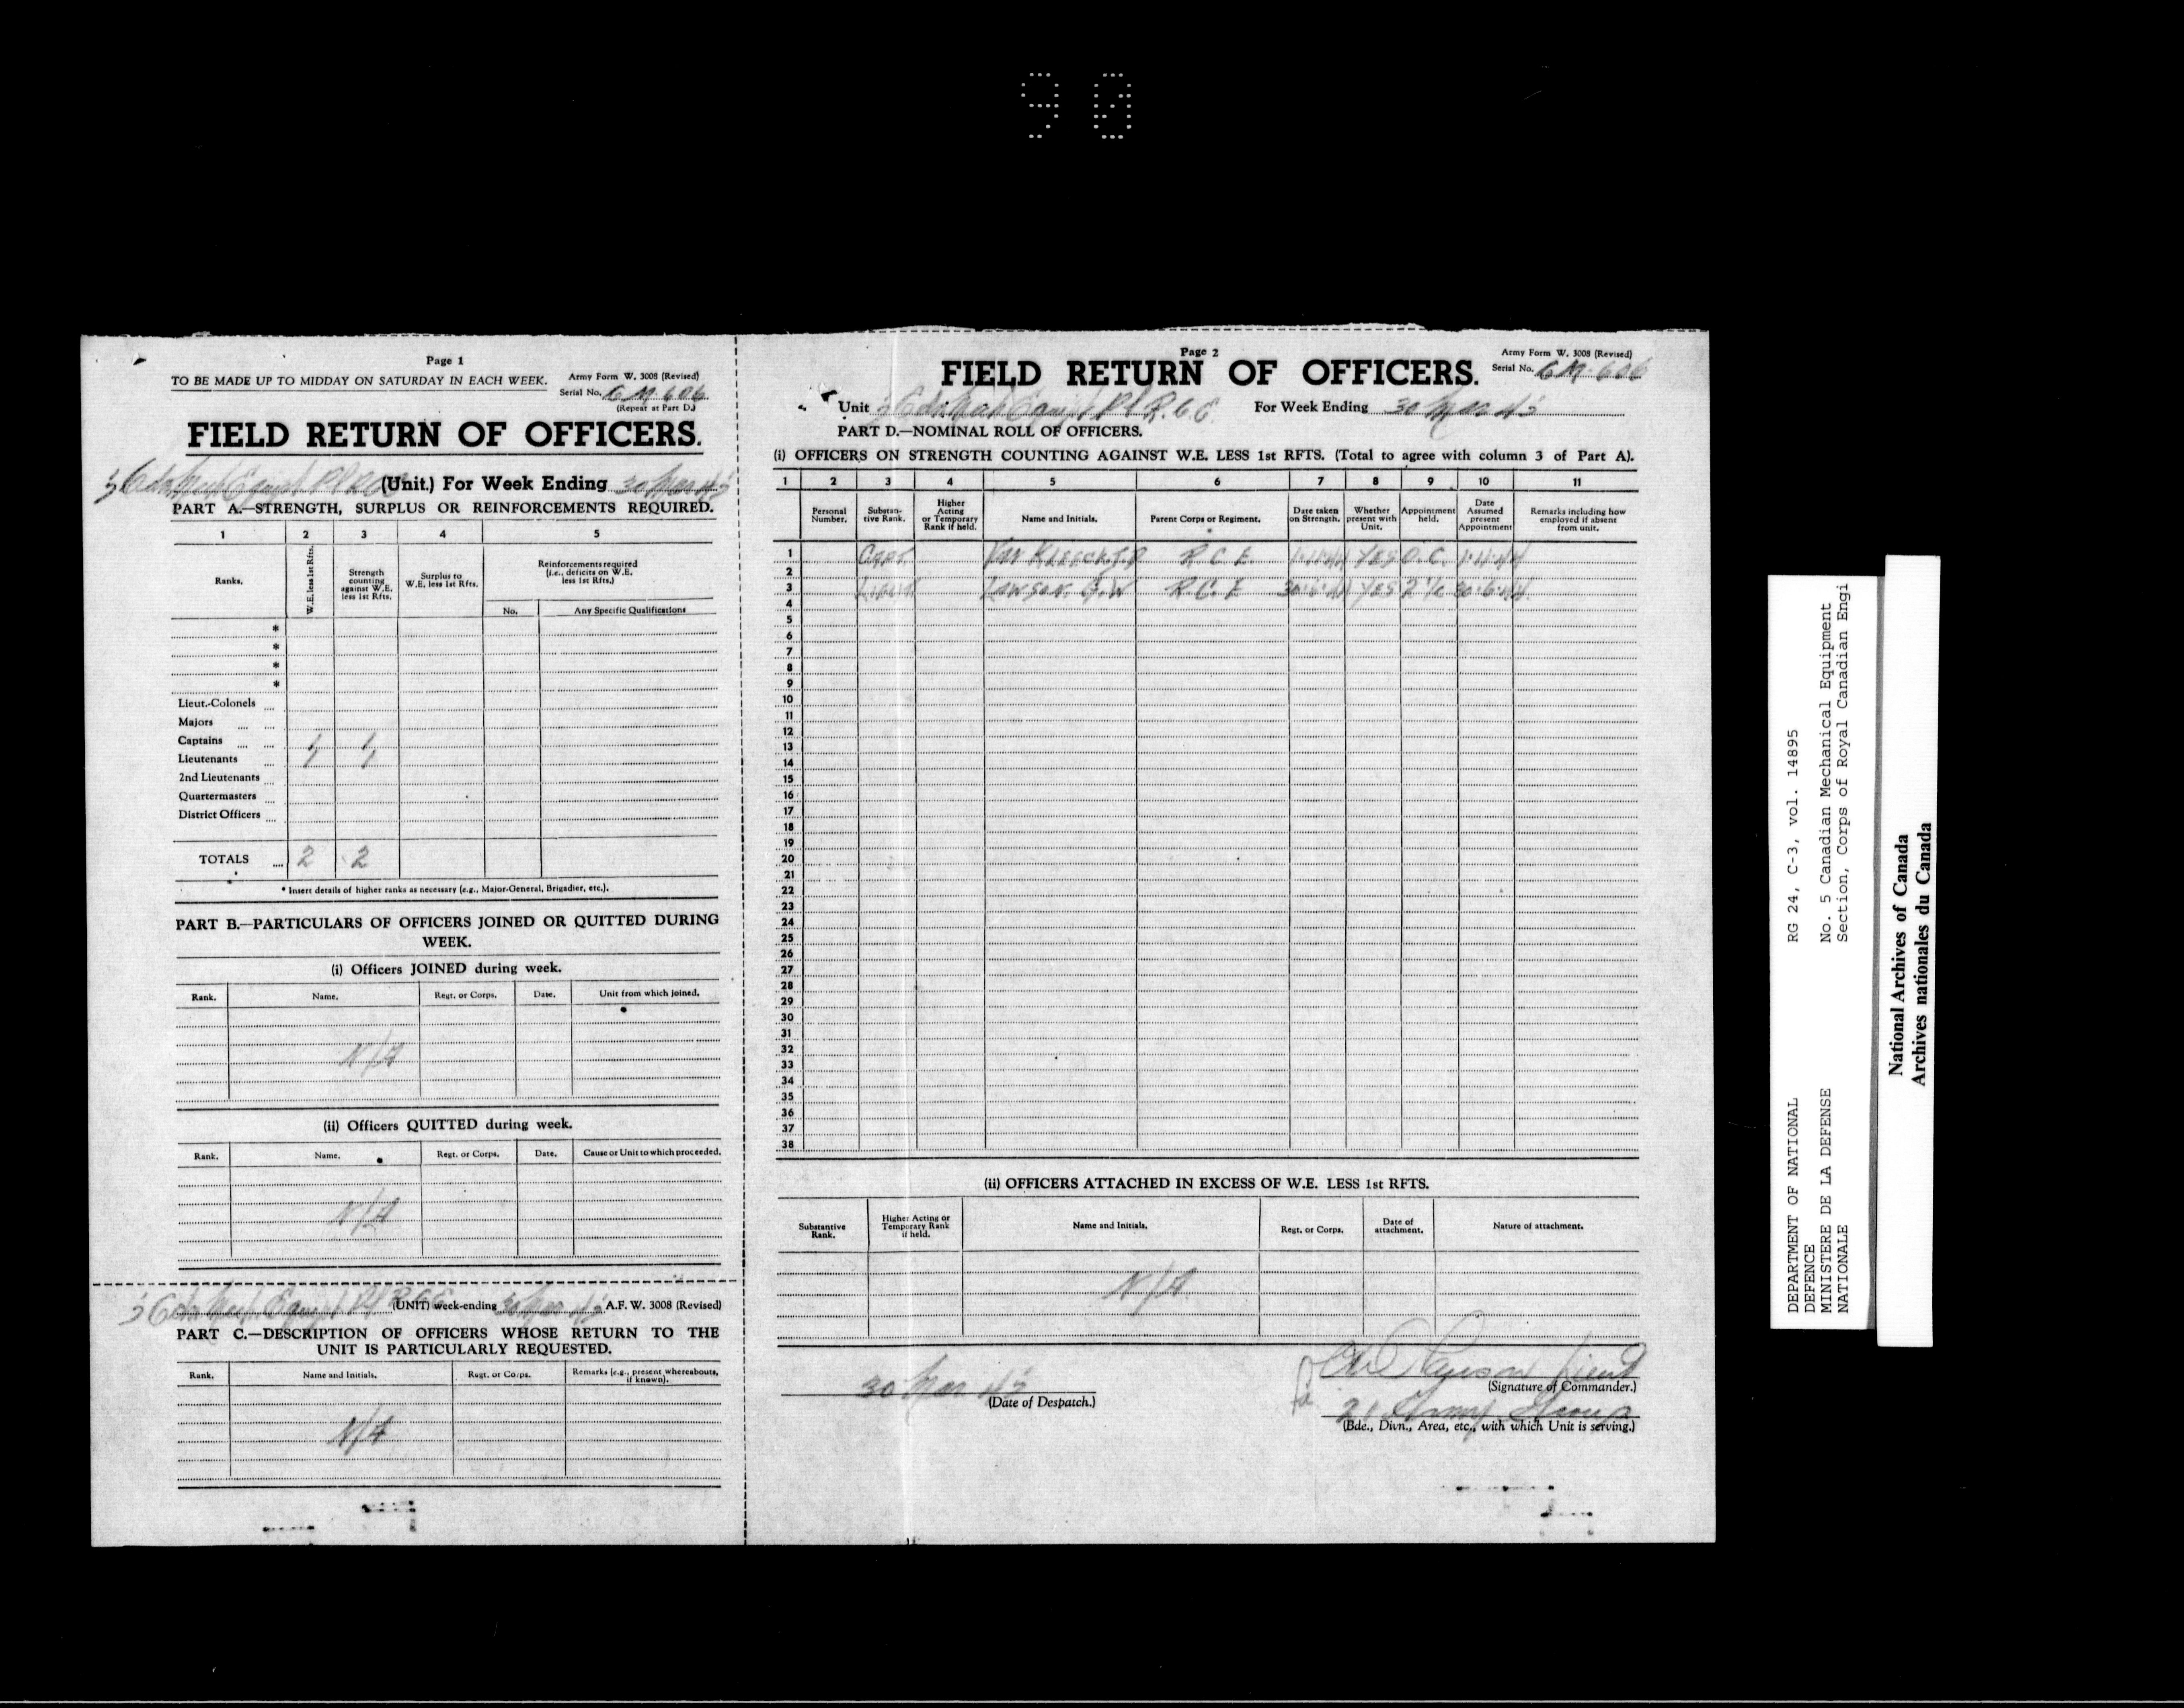 90
Page 1
TO BE MADE UP TO MIDDAY ON SATURDAY IN EACH WEEK.
Army Form W. 3008 (Revised)
Serial No. 6M 606
(Repeat at Part D.)
FIELD RETURN OF OFFICERS.
5 Cdn Mech Equipt Pl RCE (Unit.) For Week Ending 30 Mar 45
PART A.—STRENGTH, SURPLUS OR REINFORCEMENTS REQUIRED.
1 2 3 4 5
Ranks.
W.E. less 1st Rfts.
Strength counting against W.E. less 1st Rfts.
Surplus to W.E. less 1st Rfts.
Reinforcements required (i.e., deficits on W.E. less 1st Rfts.)
No. Any Specific Qualifications
*
*
*
*
Lieut.-Colonels ....
Majors .... ....
Captains .... .... 1 1
Lieutenants .... 1 1
2nd Lieutenants ....
Quartermasters ....
District Officers ....
TOTALS .... 2 2
* Insert details of higher ranks as necessary (e.g., Major-General, Brigadier, etc.).
PART B.—PARTICULARS OF OFFICERS JOINED OR QUITTED DURING
WEEK.
(i) Officers JOINED during week.
Rank. Name. Regt. or Corps. Date. Unit from which joined.
N/A
(ii) Officers QUITTED during week.
Rank. Name. Regt. or Corps. Date. Cause or Unit to which proceeded.
N/A
5 Cdn Mech Equipt Pl RCE (UNIT) week-ending 30 Mar 45 A.F. W. 3008 (Revised)
PART C.—DESCRIPTION OF OFFICERS WHOSE RETURN TO THE
UNIT IS PARTICULARLY REQUESTED.
Rank. Name and Initials. Regt. or Corps. Remarks (e.g., present whereabouts, if known).
N/A
Page 2
Army Form W. 3008 (Revised)
FIELD RETURN OF OFFICERS.
Serial No. 6M 606
Unit 5 Cdn Mech Equipt Pl R.C.E. For Week Ending 30 Mar 45
PART D.—NOMINAL ROLL OF OFFICERS.
(i) OFFICERS ON STRENGTH COUNTING AGAINST W.E. LESS 1st RFTS. (Total to agree with column 3 of Part A).
1 2 3 4 5 6 7 8 9 10 11
Personal Number.
Substantive Rank.
Higher Acting or Temporary Rank if held.
Name and Initials.
Parent Corps or Regiment.
Date taken on Strength.
Whether present with Unit.
Appointment held.
Date Assumed present Appointment
Remarks including how employed if absent from unit.
1 CAPT. VAN KLEECK. R.C.E. 1·11·44 YES O.C. 1·11·44
2
3 LIEUT LAWSON. G.W R.C.E 30·6·44 YES 2 I/C 30·6·44
4
5
6
7
8
9
10
11
12
13
14
15
16
17
18
19
20
21
22
23
24
25
26
27
28
29
30
31
32
33
34
35
36
37
38
(ii) OFFICERS ATTACHED IN EXCESS OF W.E. LESS 1st RFTS.
Substantive Rank.
Higher Acting or Temporary Rank if held.
Name and Initials.
Regt. or Corps.
Date of attachment.
Nature of attachment.
N/A
30 Mar 45
(Date of Despatch.)
Lieut
(Signature of Commander.)
21 Army Group
(Bde., Divn., Area, etc., with which Unit is serving.)
DEPARTMENT OF NATIONAL
DEFENCE
MINISTERE DE LA DEFENSE
NATIONALE
RG 24, C-3, vol. 14895
No. 5 Canadian Mechanical Equipment
Section, Corps of Royal Canadian Engi
National Archives of Canada
Archives nationales du Canada